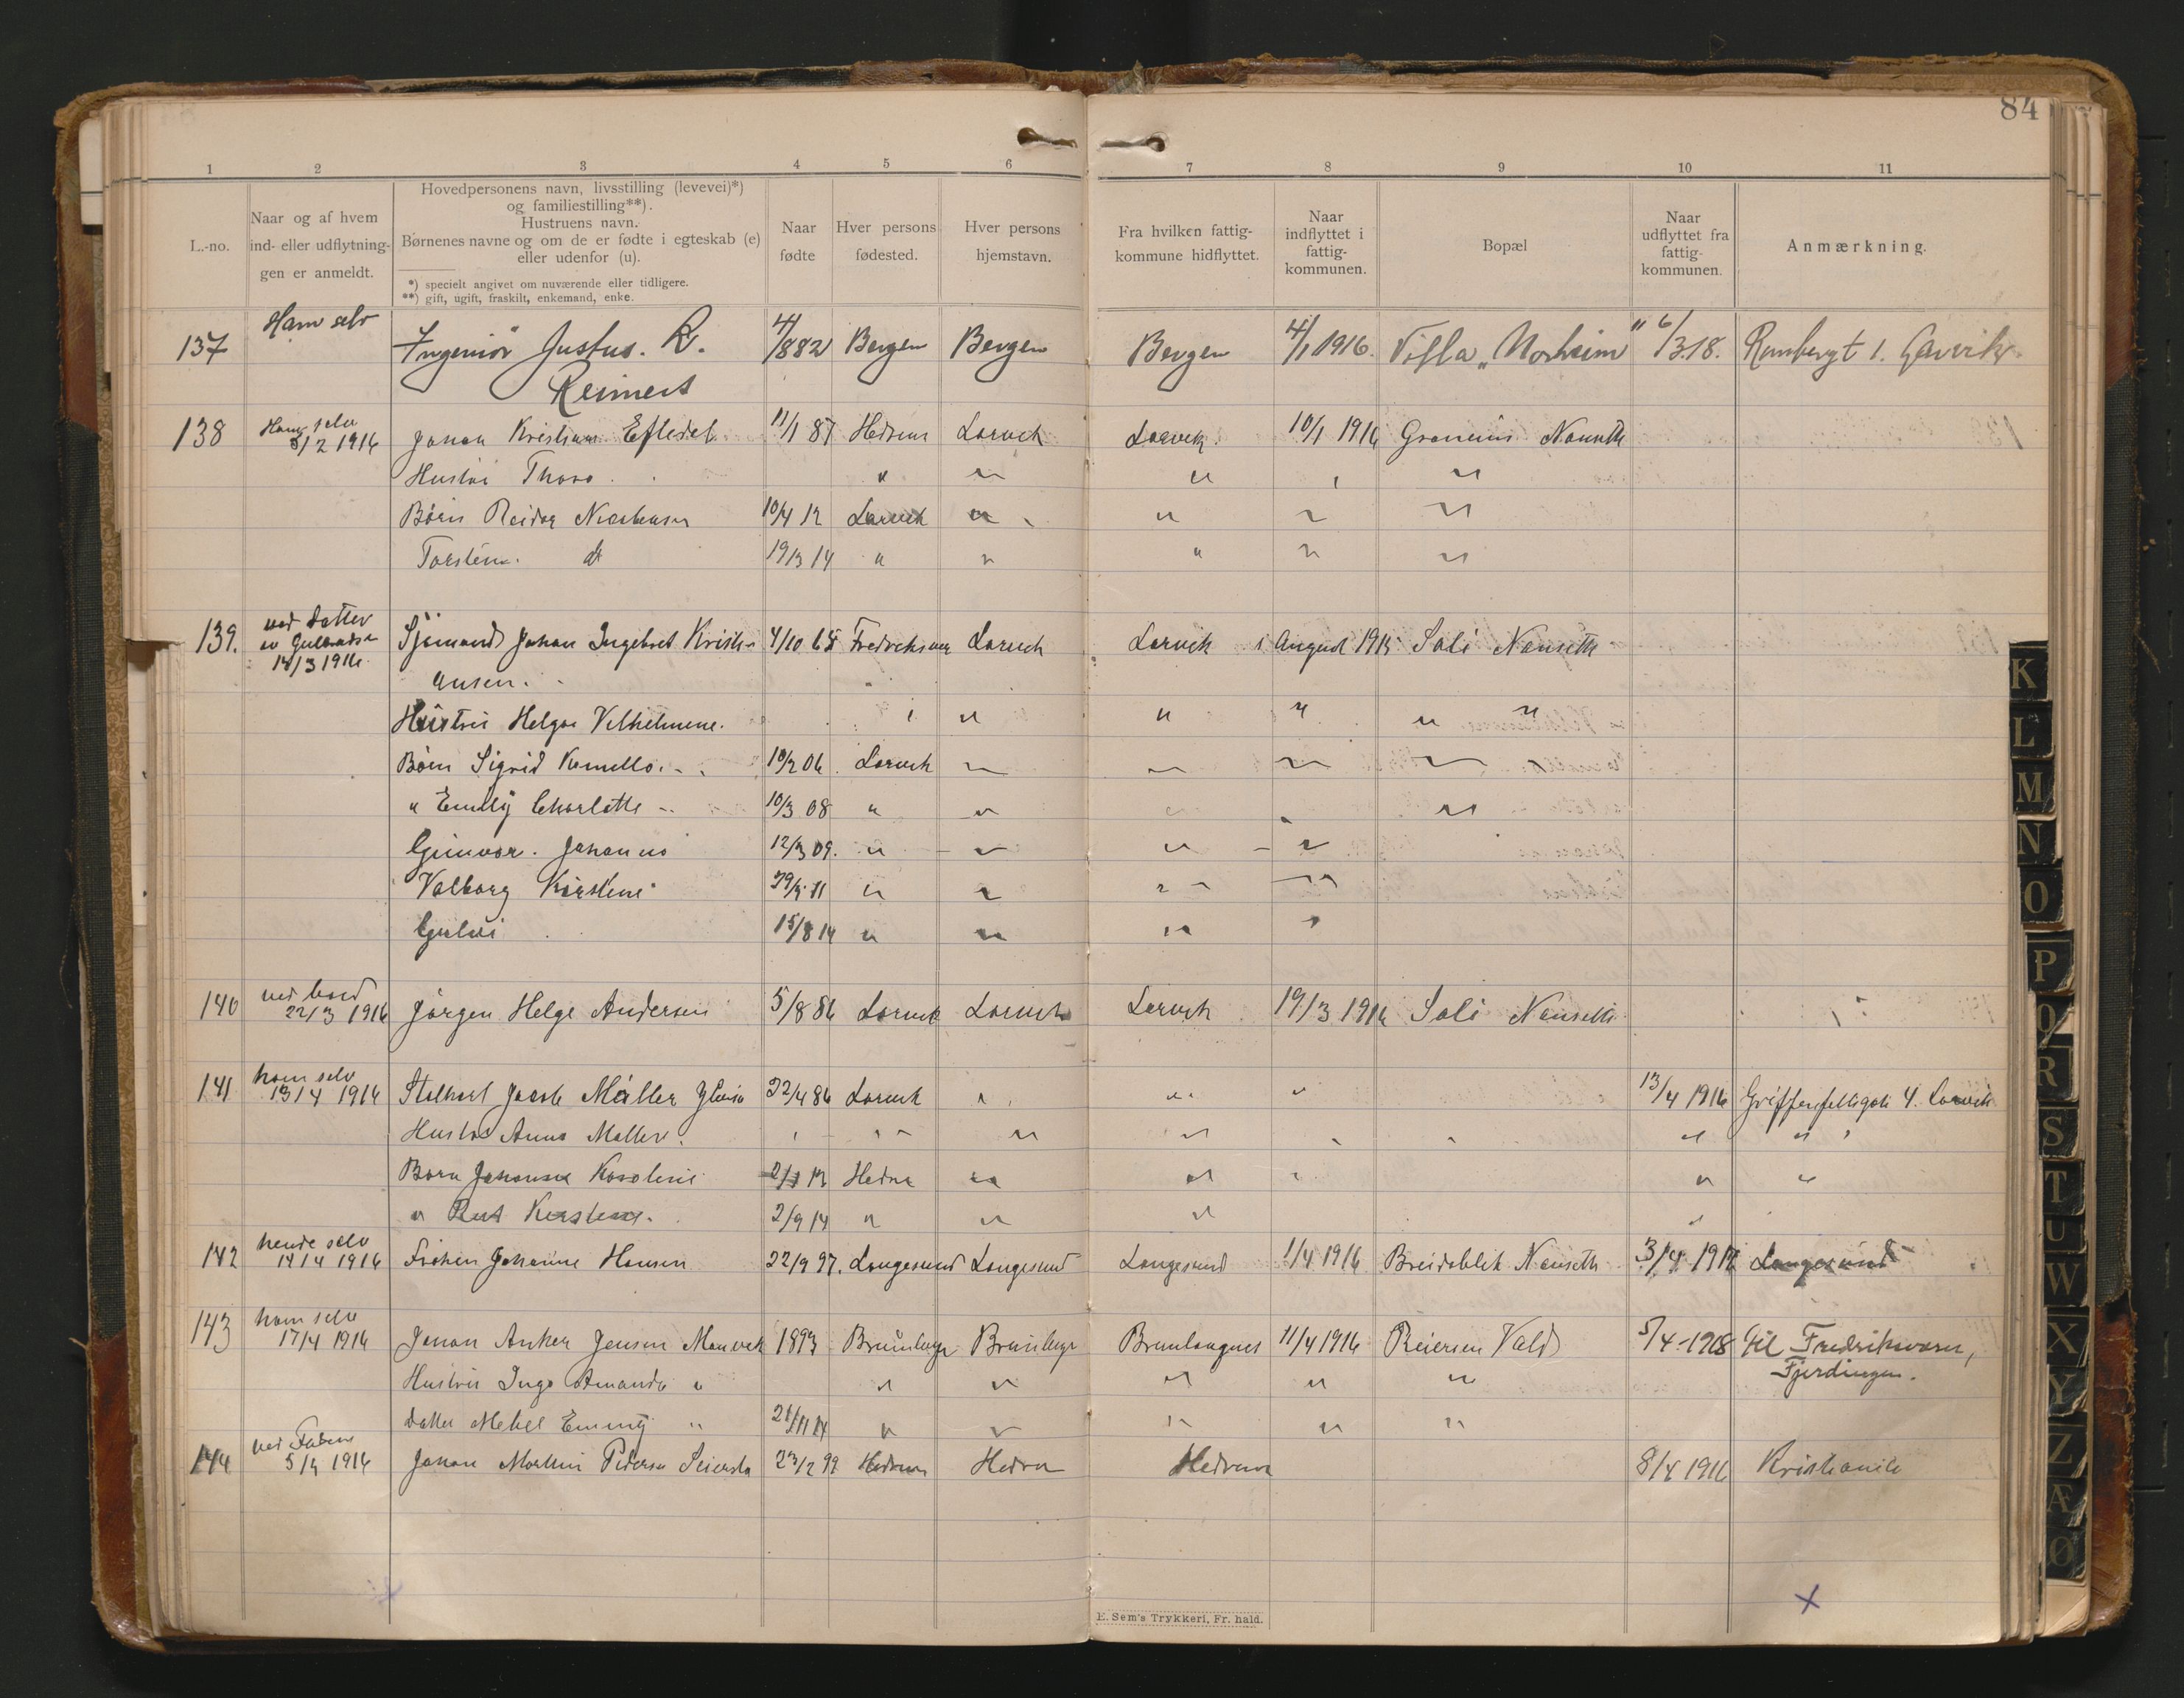 84
1 2 3 4 5 6 7 8 9 10 11
L.-no.
Naar og af hvem
ind- eller udflytning-
gen er anmeldt.
Hovedpersonens navn, livsstilling (levevei)*)
og familiestilling**).
Hustruens navn.
Børnenes navne og om de er fødte i egteskab (e)
eller udenfor (u).
*) specielt angivet om nuværende eller tidligere.
**) gift, ugift, fraskilt, enkemand, enke.
Naar
fødte
Hver persons
fødested.
Hver persons
hjemstavn.
Fra hvilken fattig-
kommune hidflyttet.
Naar
indflyttet i
fattig-
kommunen.
Bopæl
Naar
udflyttet fra
fattig-
kommunen.
Anmærkning.
Ham selv
137 Ingeniør Justus. R. 4/882 Bergen Bergen Bergen 4/1 1916. Villa „Norheim" 6/3.18.
Reimers
138 Ham selv 8/2 1916 Johan Kristian 11/1 87 Hedrum Larvik Larvik. 10/1 1916 Nanseth
Hustru Thora " " " "
Børn Reidar 10/4 12 Larvik " " " "
Torstein. do 19/3 14 " " " " "
139. ved datter 14/3 1916. Sjømand Johan Ingebret Kristi- 4/10 65 Fredriksvær Larvik Larvik i August 1915 Sole Nanseth
ansen.
Hustru Helga Vilhelmine. " " " " "
Børn Sigrid Kamilla. 19/2 06. Larvik " " " "
" Emily Charlotte 10/3 08 " " " "
Gunvor. Johanne 12/3 09. " " " "
Valborg Kirstine 11 " " " "
15/8 14 " " " "
140 22/3 1916 Jørgen Helge Andersen 5/8 86 Larvik Larvik Larvik 19/3 1916 Sole Nanseth
141 ham selv 13/4 1916 Jacob Møller 22/4 86 Larvik " " " 13/4 1916 4. Larvik
Hustru Anna Møller. " " " " "
Børn Karoline 13 Hedrum " " " "
" Rut 2/9 14 " " " "
142 hende selv 14/4 1916 Frøken Johanne Hansen 22/9 97. Langesund Langesund Langesund 1/4 1916 Breidablik Nanseth 3/4 1917 Langesund
143 ham selv 17/4 1916 Johan Anker Jensen 1893 Brunlanes 11/4 1916 Reiersen Vald 5/4-1918 til Fredriksværn,
Hustru Inga Amanda " " " " " " Fjerdingen.
Datter Emmy " 21/11 14 " " " " "
144 5/4 1916 Johan Martin Pedersen 23/2 99 Hedrum Hedrum Hedrum 8/4 1916 Kristiania
E. Sem's Trykkeri, Fr. hald.
K
L
M
N
O
P
Q
R
S
T
U
W
X
Y
Z
Æ
Ø